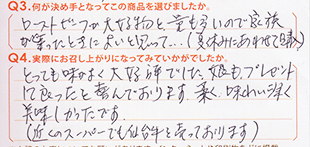 Q3.何が決め手となってこの商品を選びましたか。
ローストビーフが大好物と、量も多いので家族
が集ったときに良いと思って…(夏休みにあわせて購入)
Q4.実際にお召し上がりになってみていかがでしたか。
とっても味がよく大好評でした。娘もプレゼント
に良かったと喜んでおります。柔く、味わい深く
美味しかったです。
(近くのスーパーでも仙台牛と売っております)